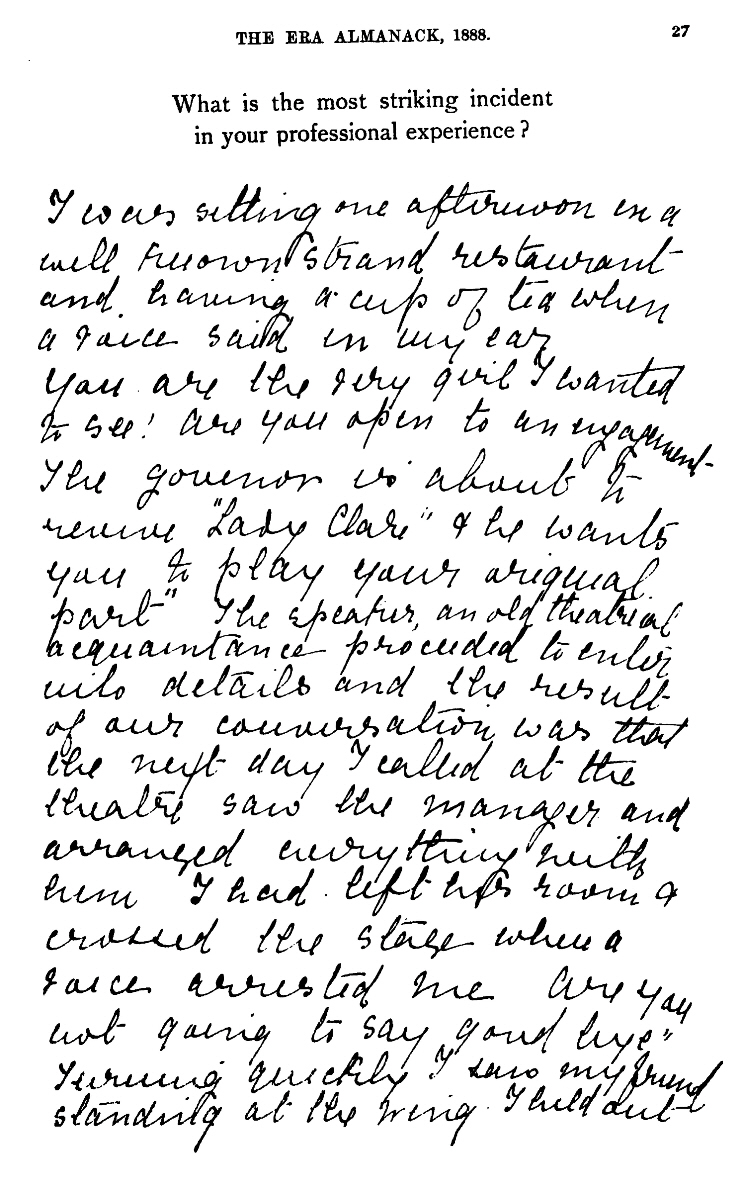 THE ERA ALMANACK, 1888.
27
What is the most striking incident
in your professional experience?
I was sitting one afternoon in a
well known Strand restaurant
and having a cup of tea when
a voice said in my ear
you are the very girl I wanted
to see! are you open to an engagement
The govenor is about to
revive "Lady Clare" & he wants
you to play your original
part" The speaker, an old theatrical
acquaintance proceeded to enter
into details and the result
of our conversation was that
the next day I called at the
theatre saw the manager and
arranged everything with
him I had left his room &
crossed the stage when a
voice arrested me are you
not going to say good bye"
Turning quickly I saw my friend
standing at the wing. I held out